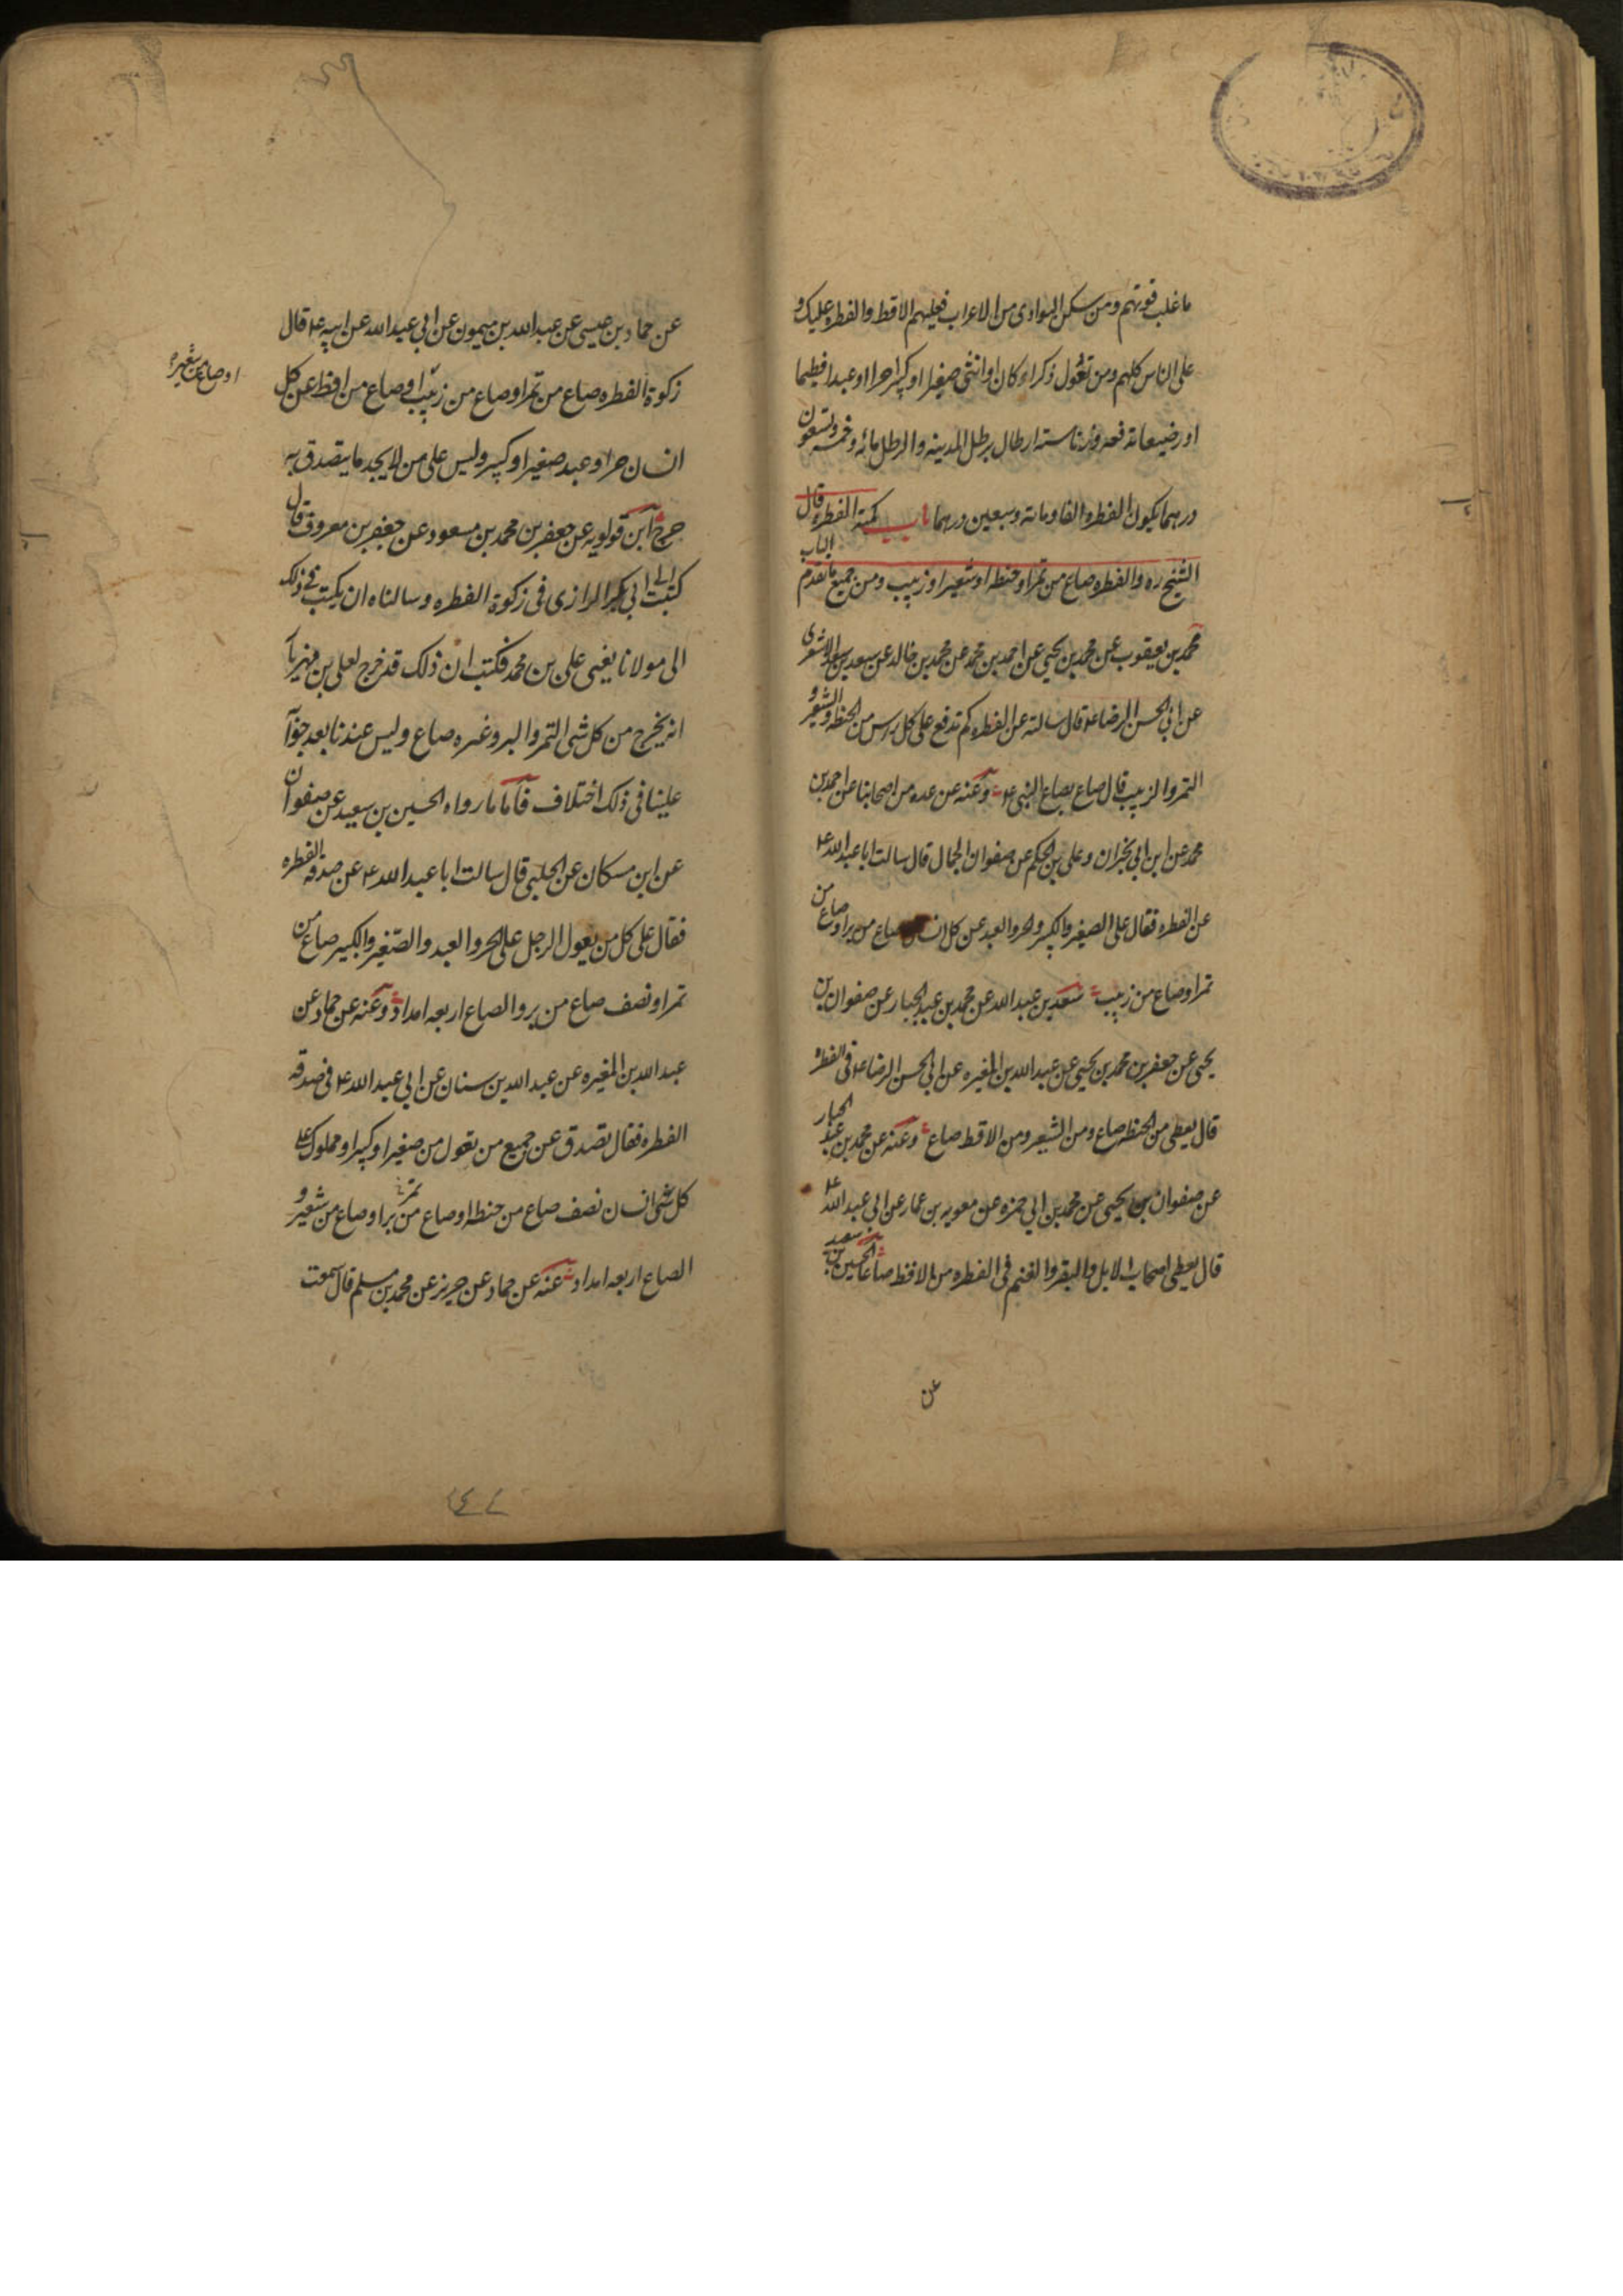 ما غلب قوتهم ومن سكن البوادى من الاعراب فعليهم الاقط والفطره عليك و
على الناس كلهم ومن تعول ذكرا كان او انثى صغيرا او كبيرا حرا او عبدا فطيما
او رضيعا تدفعه وزنا سته ارطال برطل المدينه والرطل مائه وخمسه وتسعون
درهما يكون الفطره الفا ومائه وسبعين درهما باب كمية الفطره قال
الشيخ ره والفطره صاع من تمر او حنطه او شعير او زبيب ومن جميع ما تقدم الباب
محمد بن يعقوب عن محمد بن يحيى عن احمد بن محمد عن محمد بن خالد عن سعد بن سعد الاشعرى
عن ابى الحسن الرضا ع قال سالته عن الفطره كم تدفع على كل راس من الحنطه والشعير و
التمر والزبيب قال صاع بصاع النبى ع وعنه عن عده من اصحابنا عن احمد بن
محمد عن ابن ابى نجران وعلى بن الحكم عن صفوان الجمال قال سالت ابا عبد الله ع
عن الفطره فقال على الصغير والكبير والحر والعبد عن كل انسان صاع من بر او صاع من
تمر او صاع من زبيب سعد بن عبد الله عن محمد بن عبد الجبار عن صفوان بن
يحيى عن جعفر بن محمد بن يحيى عن عبد الله بن المغيره عن ابى الحسن الرضا ع فى الفطره
قال يعطى من الحنطه صاع ومن الشعير ومن الاقط صاع وعنه عن محمد بن عبد الجبار
عن صفوان بن يحيى عن محمد بن ابى حمزه عن معويه بن عمار عن ابى عبد الله ع
قال يعطى اصحاب الابل والبقر والغنم فى الفطره من الاقط صاعا الحسين بن سعيد
عن
عن حماد بن عيسى عن عبد الله بن ميمون عن ابى عبد الله عن ابيه ع قال
زكوة الفطره صاع من تمر او صاع من زبيب او صاع من اقط عن كل
او صاع من شعير
انسان حر او عبد صغير او كبير وليس على من لا يجد ما يتصدق به
حرج ابن قولويه عن جعفر بن محمد بن مسعود عن جعفر بن معروف قال
كتبت الى ابى بكر الرازى فى زكوة الفطره وسالناه ان يكتب فى ذلك
الى مولانا يعنى على بن محمد فكتب ان ذلك قد خرج لعلى بن مهزيار
انه يخرج من كل شى التمر والبر وغيره صاع وليس عندنا بعد جوابه
علينا فى ذلك اختلاف فاما ما رواه الحسين بن سعيد عن صفوان
عن ابن مسكان عن الحلبى قال سالت ابا عبد الله ع عن صدقه الفطره
فقال على كل من يعول الرجل على الحر والعبد والصغير والكبير صاع من
تمر او نصف صاع من بر والصاع اربعه امداد وعنه عن حماد عن
عبد الله بن المغيره عن عبد الله بن سنان عن ابى عبد الله ع فى صدقه
الفطره فقال تصدق عن جميع من تعول من صغير او كبير او مملوك على
كل انسان نصف صاع من حنطه او صاع من تمر او صاع من شعير و
الصاع اربعه امداد عنه عن حماد عن حريز عن محمد بن مسلم قال سمعت